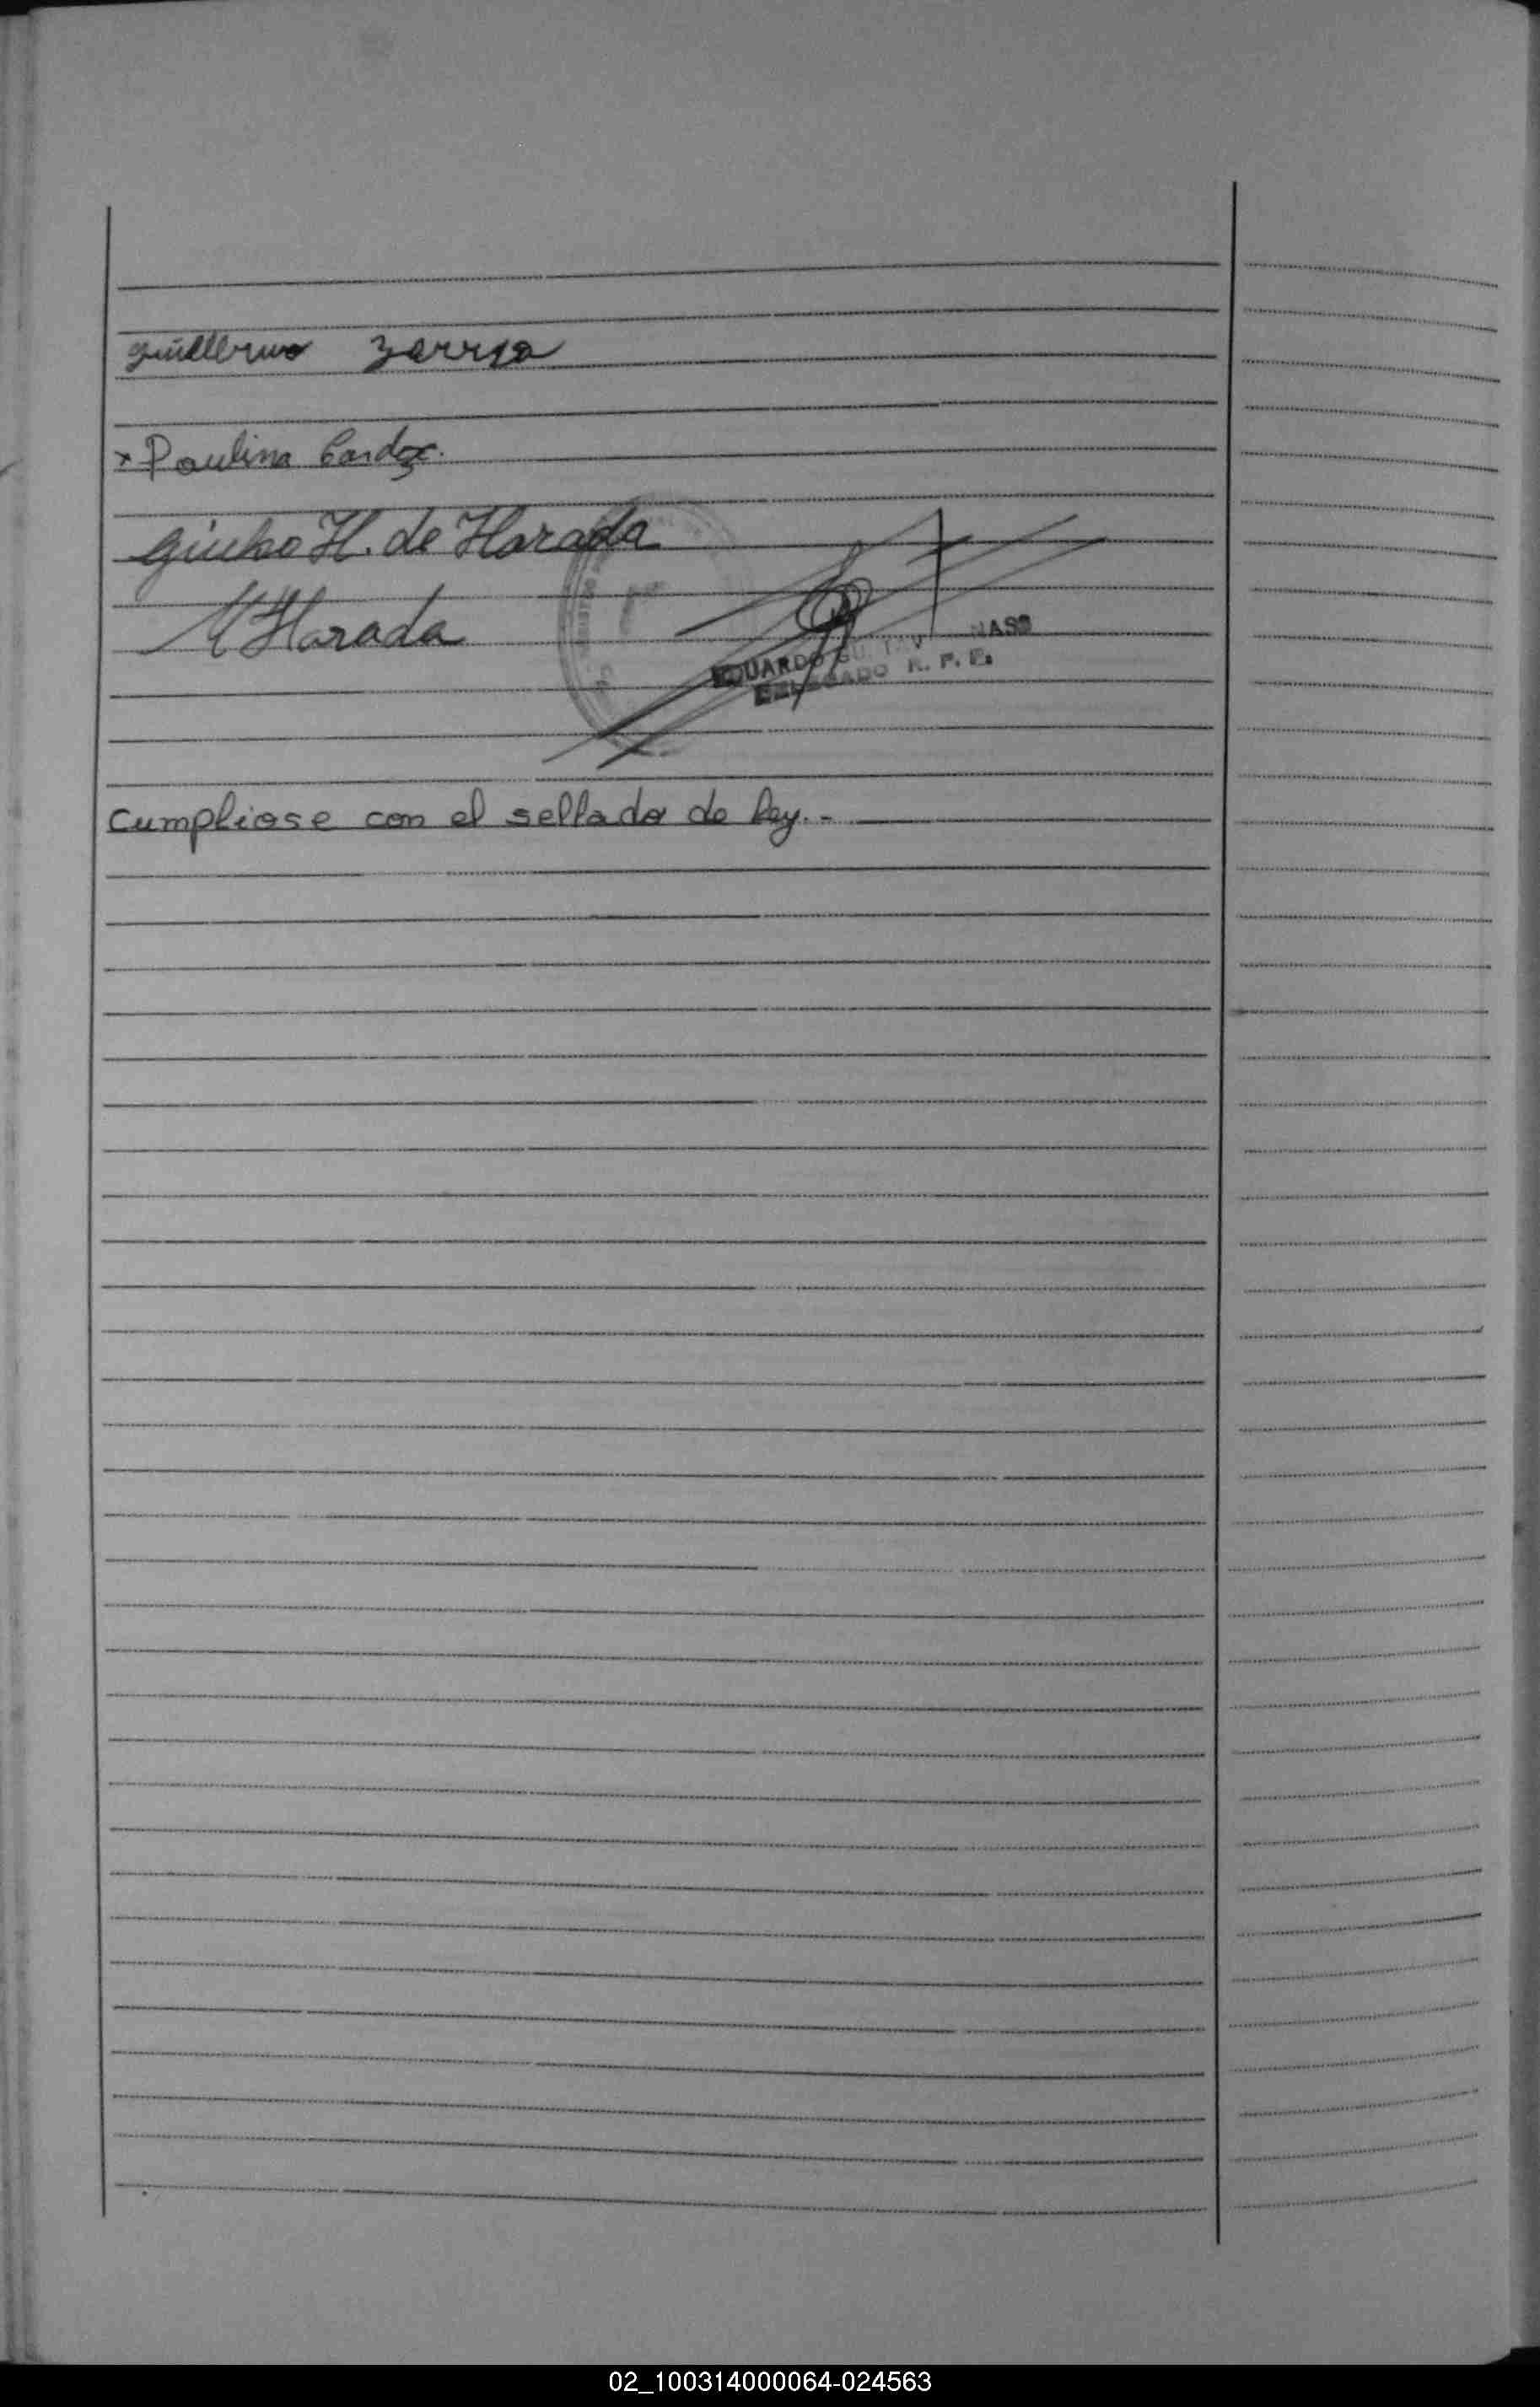 Guillermo Zarria
x Paulina Cardoz.
Giuko H. de Harada
M Harada
EDUARDO GUSTAV NASO
DELEGADO R. P. E.
Cumpliose con el sellado de Ley. -
02_100314000064-024563